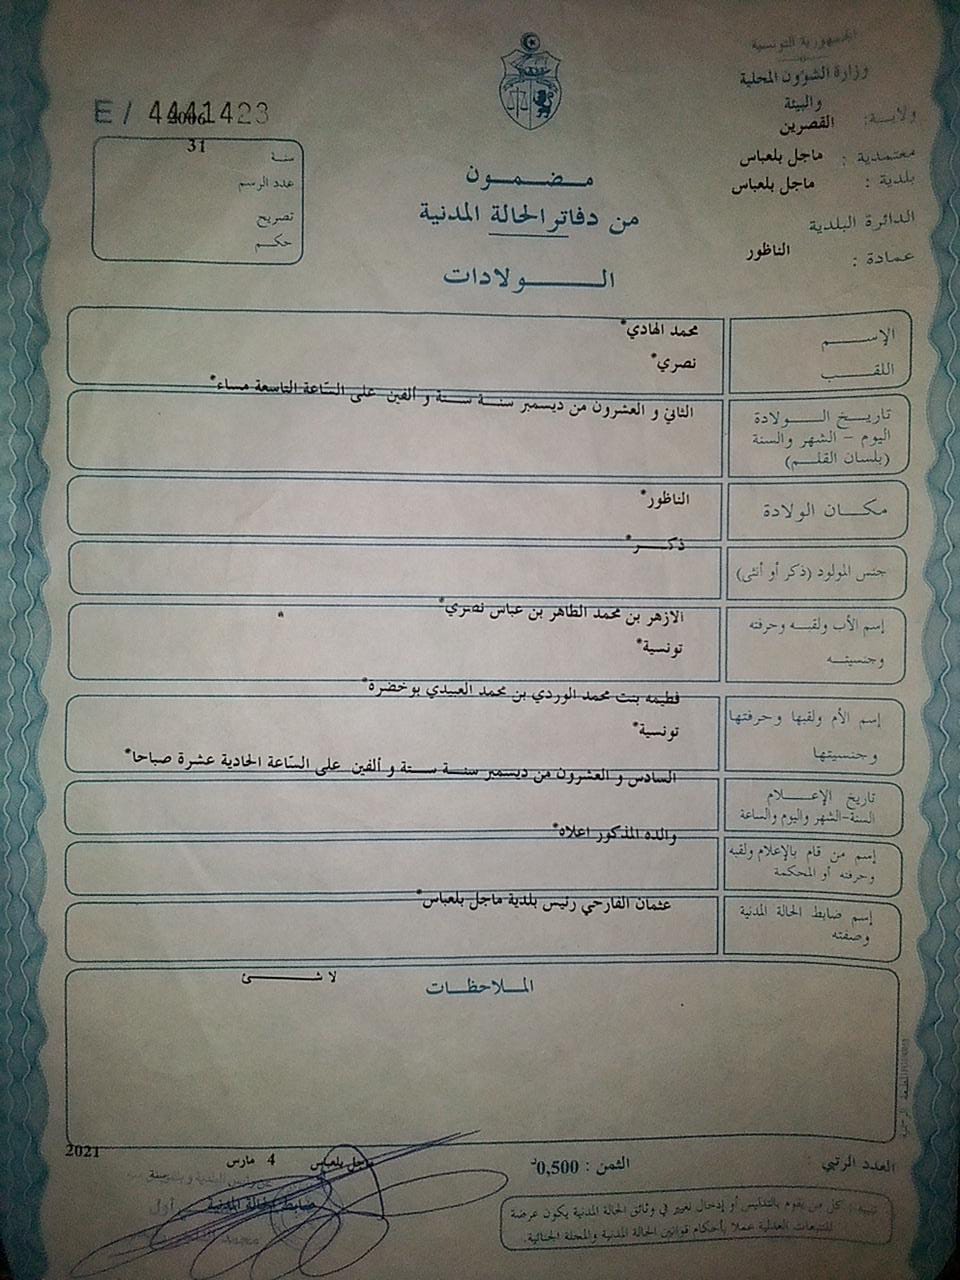 الجمهورية التونسية
وزارة الشؤون المحلية
والبيئة
ولايـــة: القصرين
معتمدية : ماجل بلعباس
بلدية : ماجل بلعباس
الدائرة البلدية
عمادة : الناظور
E / 4441423
2006
31
سنة
عدد الرسم
تصريح
حكم
مـضـمـون
من دفاتر الحالة المدنية
الـــولادات
الإســـم محمد الهادي*
اللقـــب نصري*
تاريـخ الـــولادة
اليوم – الشهر والسنة
(بلسان القلـم)
الثاني و العشرون من ديسمبر سنة ستة و ألفين على السّاعة التاسعة مساء*
مكـان الولادة الناظور*
جنس المولود (ذكر أو أنثى) ذكـــر*
إسم الأب ولقبـه وحرفته الازهر بن محمد الطاهر بن عباس نصري* *
وجنسيتـه تونسية*
إسم الأم ولقبها وحرفتها فطيمه بنت محمد الوردي بن محمد العبيدي بوخضرة*
وجنسيتها تونسية*
تاريخ الإعـــلام
السنة-الشهر واليوم والساعة
السادس و العشرون من ديسمبر سنة ستة و ألفين على السّاعة الحادية عشرة صباحا*
إسم من قام بالإعلام ولقبه
وحرفته أو المحكمة
والده المذكور اعلاه*
إسم ضابط الحالة المدنية
وصفته
عثمان الفارحي رئيس بلدية ماجل بلعباس*
الملاحظات
لا شـــئ
العدد الرتبي :
الثمن : 0,500د
ماجل بلعباس 4 مارس 2021
ضابط الحالة المدنية
تنبيه : كل من يقوم بالتدليس أو إدخال تغيير في وثائق الحالة المدنية يكون عرضة
للتتبعات العدلية عملا بأحكام قوانين الحالة المدنية والمجلة الجنائية.